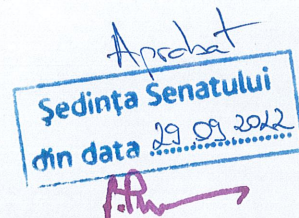 Aprobat
Ședința Senatului
din data 29 09 2022